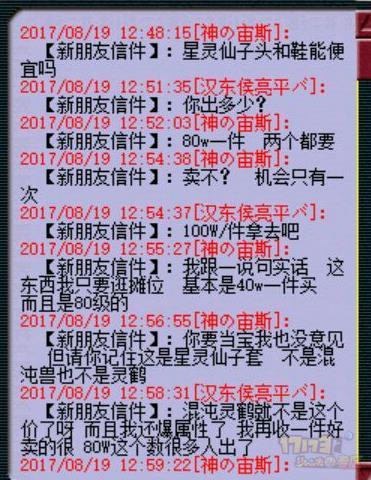 2017/08/19 12:48:15[神の宙斯]:
【新朋友信件】: 星灵仙子头和鞋能便
宜吗
2017/08/19 12:51:35[汉东侯亮平パ]:
【新朋友信件】: 你出多少?
2017/08/19 12:52:03[神の宙斯]:
【新朋友信件】: 80w一件 两个都要
2017/08/19 12:54:38[神の宙斯]:
【新朋友信件】: 卖不? 机会只有一
次
2017/08/19 12:54:37[汉东侯亮平パ]:
【新朋友信件】: 100W/件拿去吧
2017/08/19 12:55:27[神の宙斯]:
【新朋友信件】: 我跟一说句实话 这
东西我只要逛摊位 基本是40w一件买
而且是80级的
2017/08/19 12:56:55[神の宙斯]:
【新朋友信件】: 你要当宝我也没意见
但请你记住这是星灵仙子套 不是混
沌兽也不是灵鹤
2017/08/19 12:58:31[汉东侯亮平パ]:
【新朋友信件】: 混沌灵鹤就不是这个
价了呀 而且我还爆属性了 我再收一件好
卖的很 80W这个数很多人出了
2017/08/19 12:59:22[神の宙斯]:
17173